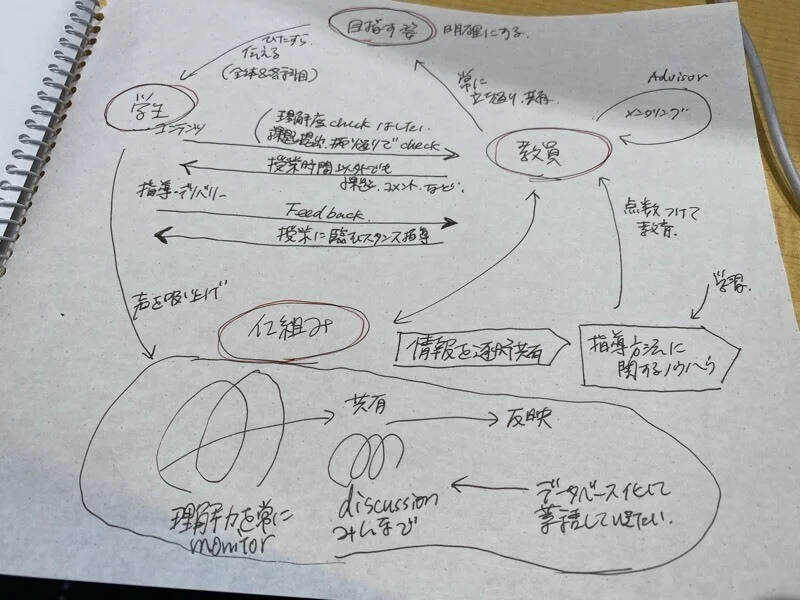 目指す姿 明確にする
ひたすら
伝える
(全体&各科目)
学生
コンテンツ
理解度checkはしたい
課題提出、振り返りでcheck
授業時間以外でも
課題、コメントなど
常に
立ち返り、共有
Advisor
メンタリング
教員
指導・デリバリー
Feedback
授業に臨むスタンス指導
点数つけて
教育
学習
声を吸い上げ
仕組み
情報を逐次共有
指導方法に
関するノウハウ
共有
反映
理解力を常に
monitor
discussion
みんなで
データベース化して
蓄積していきたい